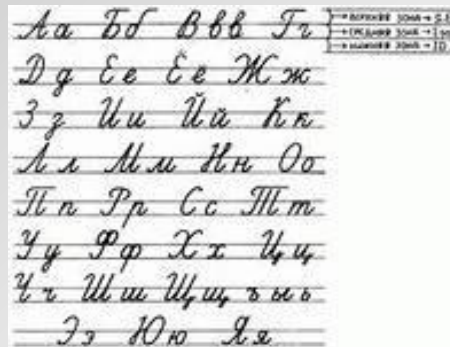 Аа Бб Ввв Гг
верхняя зона
средняя зона
нижняя зона
Дд Ее Ёё Жж
Зз Ии Йй Кк
Лл Мм Нн Оо
Пп Рр Сс Тт
Уу Фф Хх Цц
Чч Шш Щщ ъ ы ь
Ээ Юю Яя